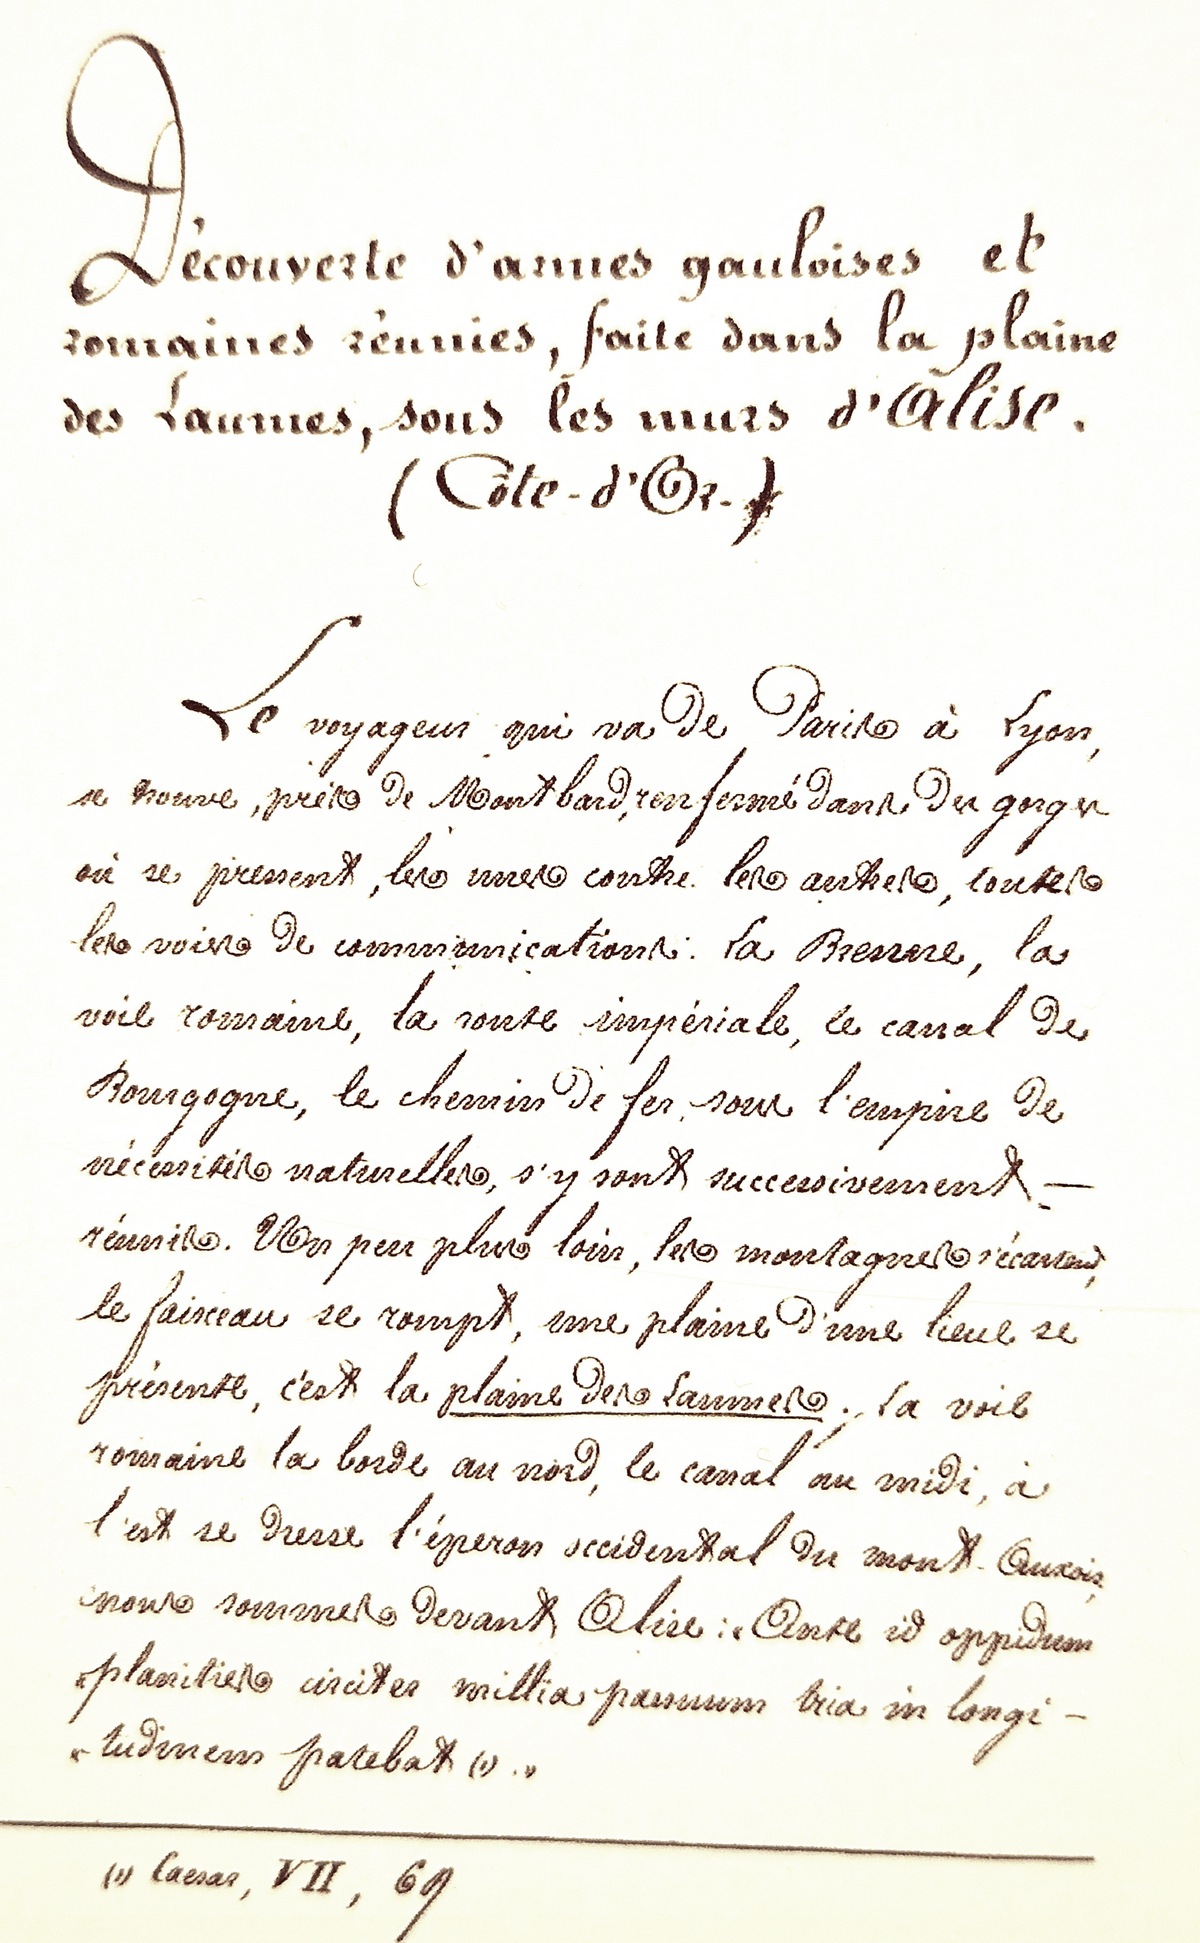 Découverte d'armes gauloises et
romaines réunies, faite dans la plaine
des Laumes, sous les murs d'Alise.
(Côte-d'Or.)
Le voyageur qui va de Paris à Lyon,
se trouve, près de Montbard, renfermé dans des gorges
où se pressent, les unes contre les autres, toutes
les voies de communications. La Brenne, la
voie romaine, la route impériale, le canal de
Bourgogne, le chemin de fer, sous l'empire de
nécessités naturelles, s'y sont successivement —
réunis. Un peu plus loin, les montagnes s'écartent,
le faisceau se rompt, une plaine d'une lieue se
présente, c'est la plaine des Laumes. La voie
romaine la borde au nord, le canal au midi, à
l'est se dresse l'éperon occidental du mont-Auxois,
nous sommes devant Alise : « Ante id oppidum
« planities circiter millia passuum tria in longi-
« tudinem patebat (1). »
(1) Caesar, VII, 69